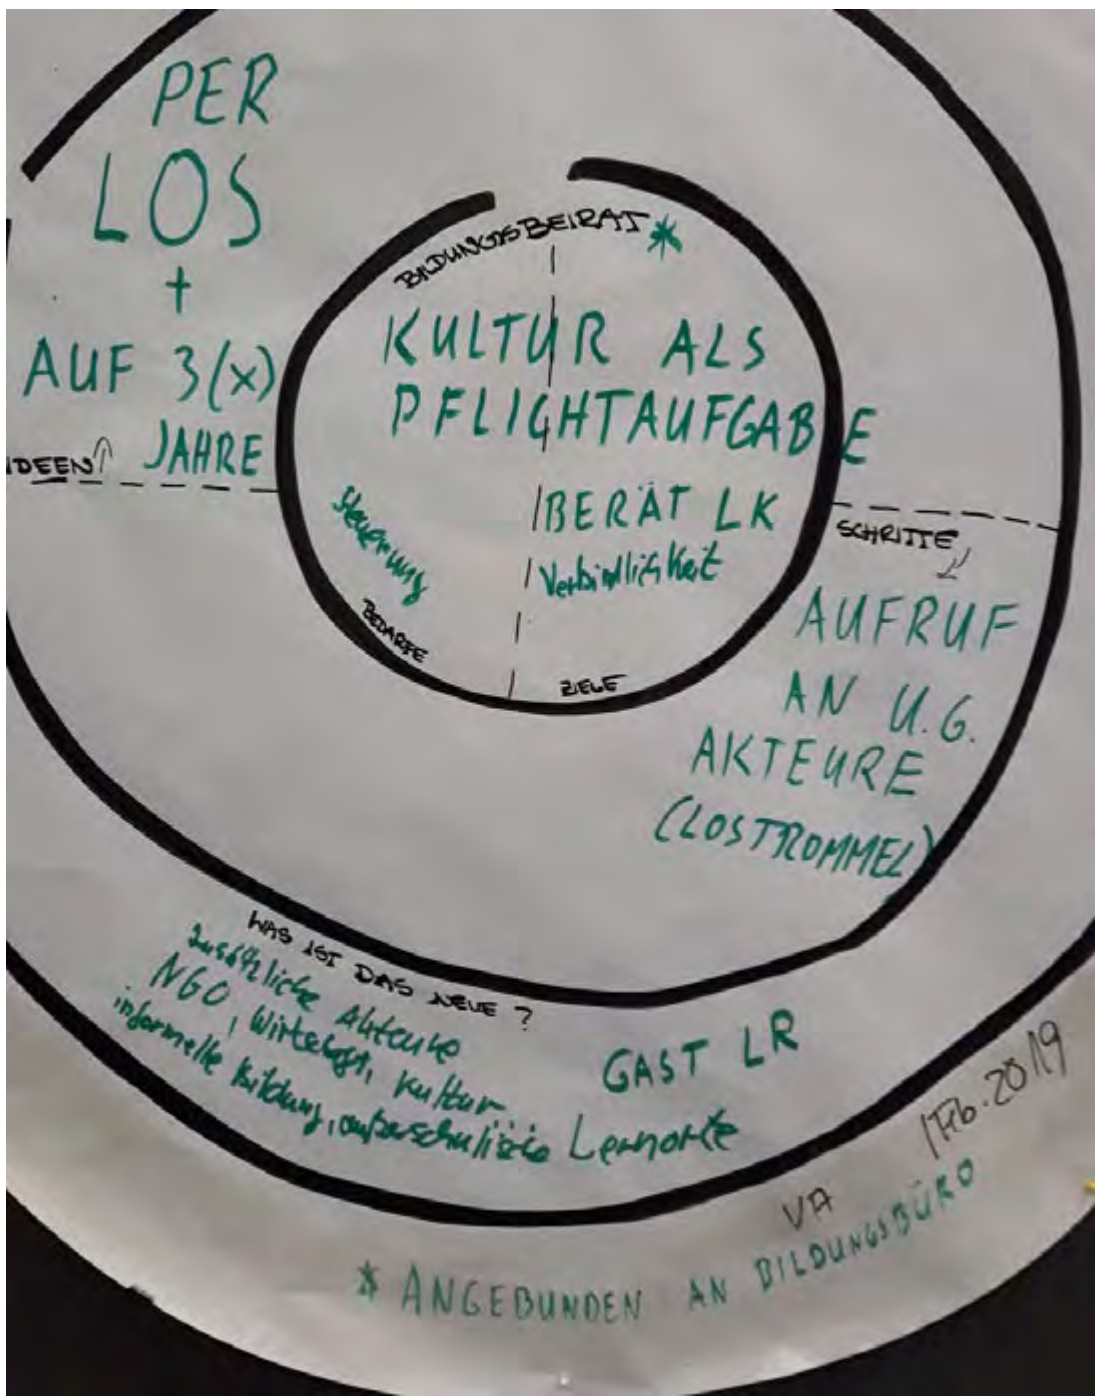 PER
LOS
+
AUF 3(x)
JAHRE
IDEEN
BILDUNGSBEIRAT*
KULTUR ALS
PFLICHTAUFGABE
Steuerung
BERÄT LK
Verbindlichkeit
BEDARFE
ZIELE
SCHRITTE
AUFRUF
AN U.G.
AKTEURE
(LOSTROMMEL)
WAS IST DAS NEUE?
zusätzliche Akteure
NGO, Wirtschaft, Kultur
informelle Bildung, außerschulische Lernorte
GAST LR
VA
* ANGEBUNDEN AN BILDUNGSBÜRO
Feb. 2019